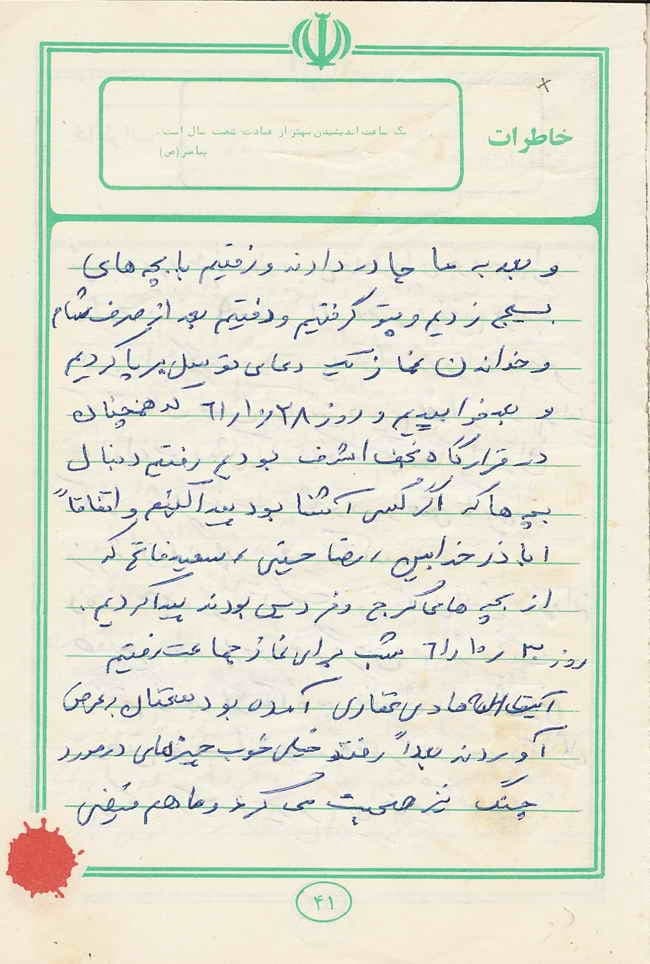 خاطرات
یک ساعت اندیشیدن بهتر از عبادت شصت سال است.
پیامبر(ص)
و بعد به ما چادر دادند و رفتیم با بچه های
بسیج زدیم و پتو گرفتیم و رفتیم بعد از صرف شام
و خواندن نماز یک دعای توسل برپا کردیم
و بعد خوابیدیم و روز ۶۱/۱۰/۲۸ که همچنان
در قرارگاه نجف اشرف بودیم رفتیم دنبال
بچه ها که اگر کسی آشنا بود پیدا کنیم و اتفاقاً
اباذر خدابین، رضا حسینی، سعید فاتح که
از بچه های کرج و فردیس بودند پیدا کردیم.
روز ۶۱/۱۰/۳۰ شب برای نماز جماعت رفتیم
آیت الله هادی غفاری آمده بود سخنان
آوردند بعداً رفتند خیلی خوب چیزهای در مورد
جنگ نیز صحبت می کرد و ما هم فیضی
۴۱